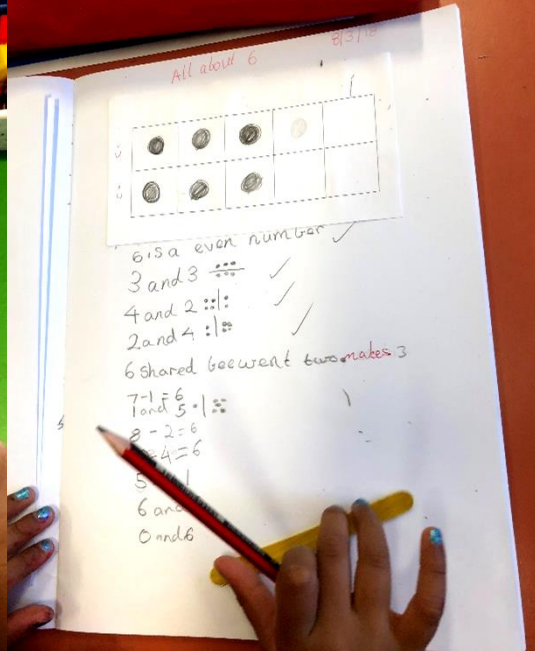 All about 6
8/3/18
6 is a even number
3 and 3
4 and 2
2 and 4
6 shared beewent two makes 3
7-1=6
1 and 5
8-2=6
-4=6
5 1
6 and
0 and 6